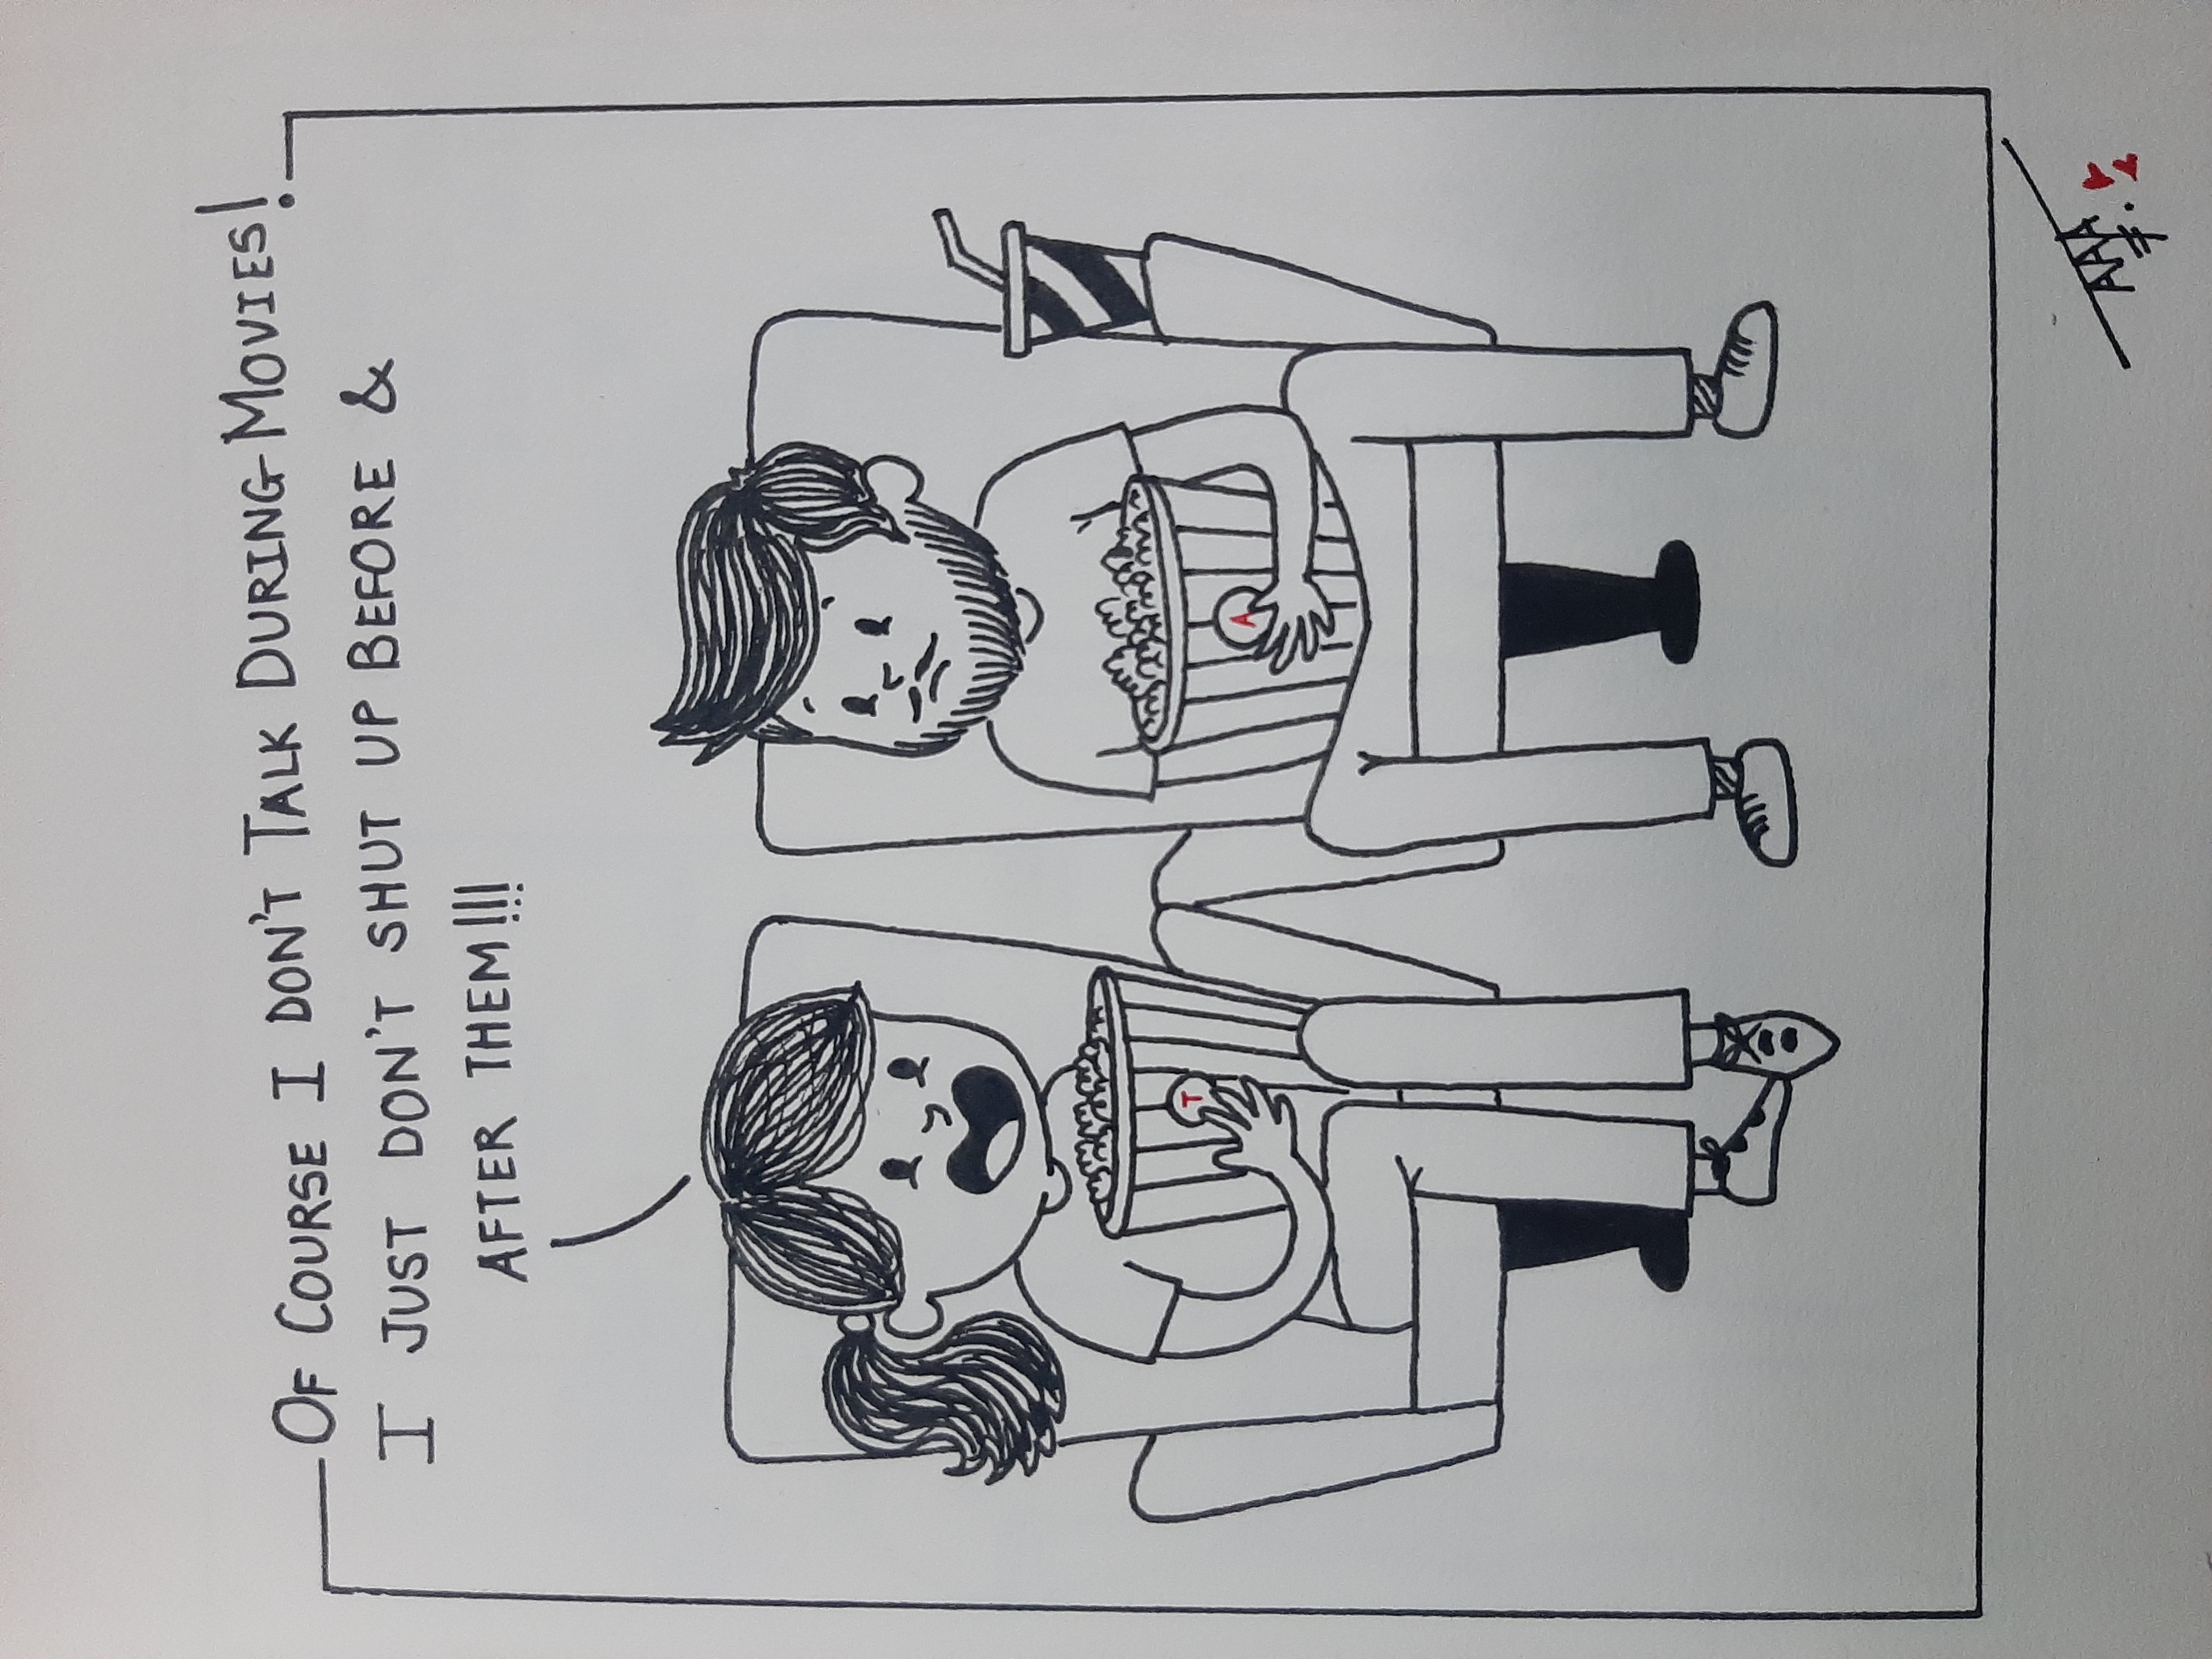 OF COURSE I DON'T TALK DURING MOVIES!
I JUST DON'T SHUT UP BEFORE &
AFTER THEM!!!
T
A
AAA